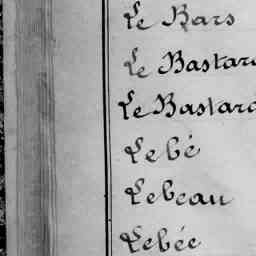 Le Bars
Le Bastard
Le Bastard
Lebé
Lebeau
Lebée